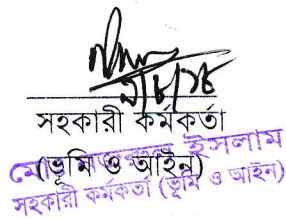 সহকারী কর্মকর্তা
(ভূমি ও আইন)
মোঃ ইসলাম
সহকারী কর্মকর্তা (ভূমি ও আইন)